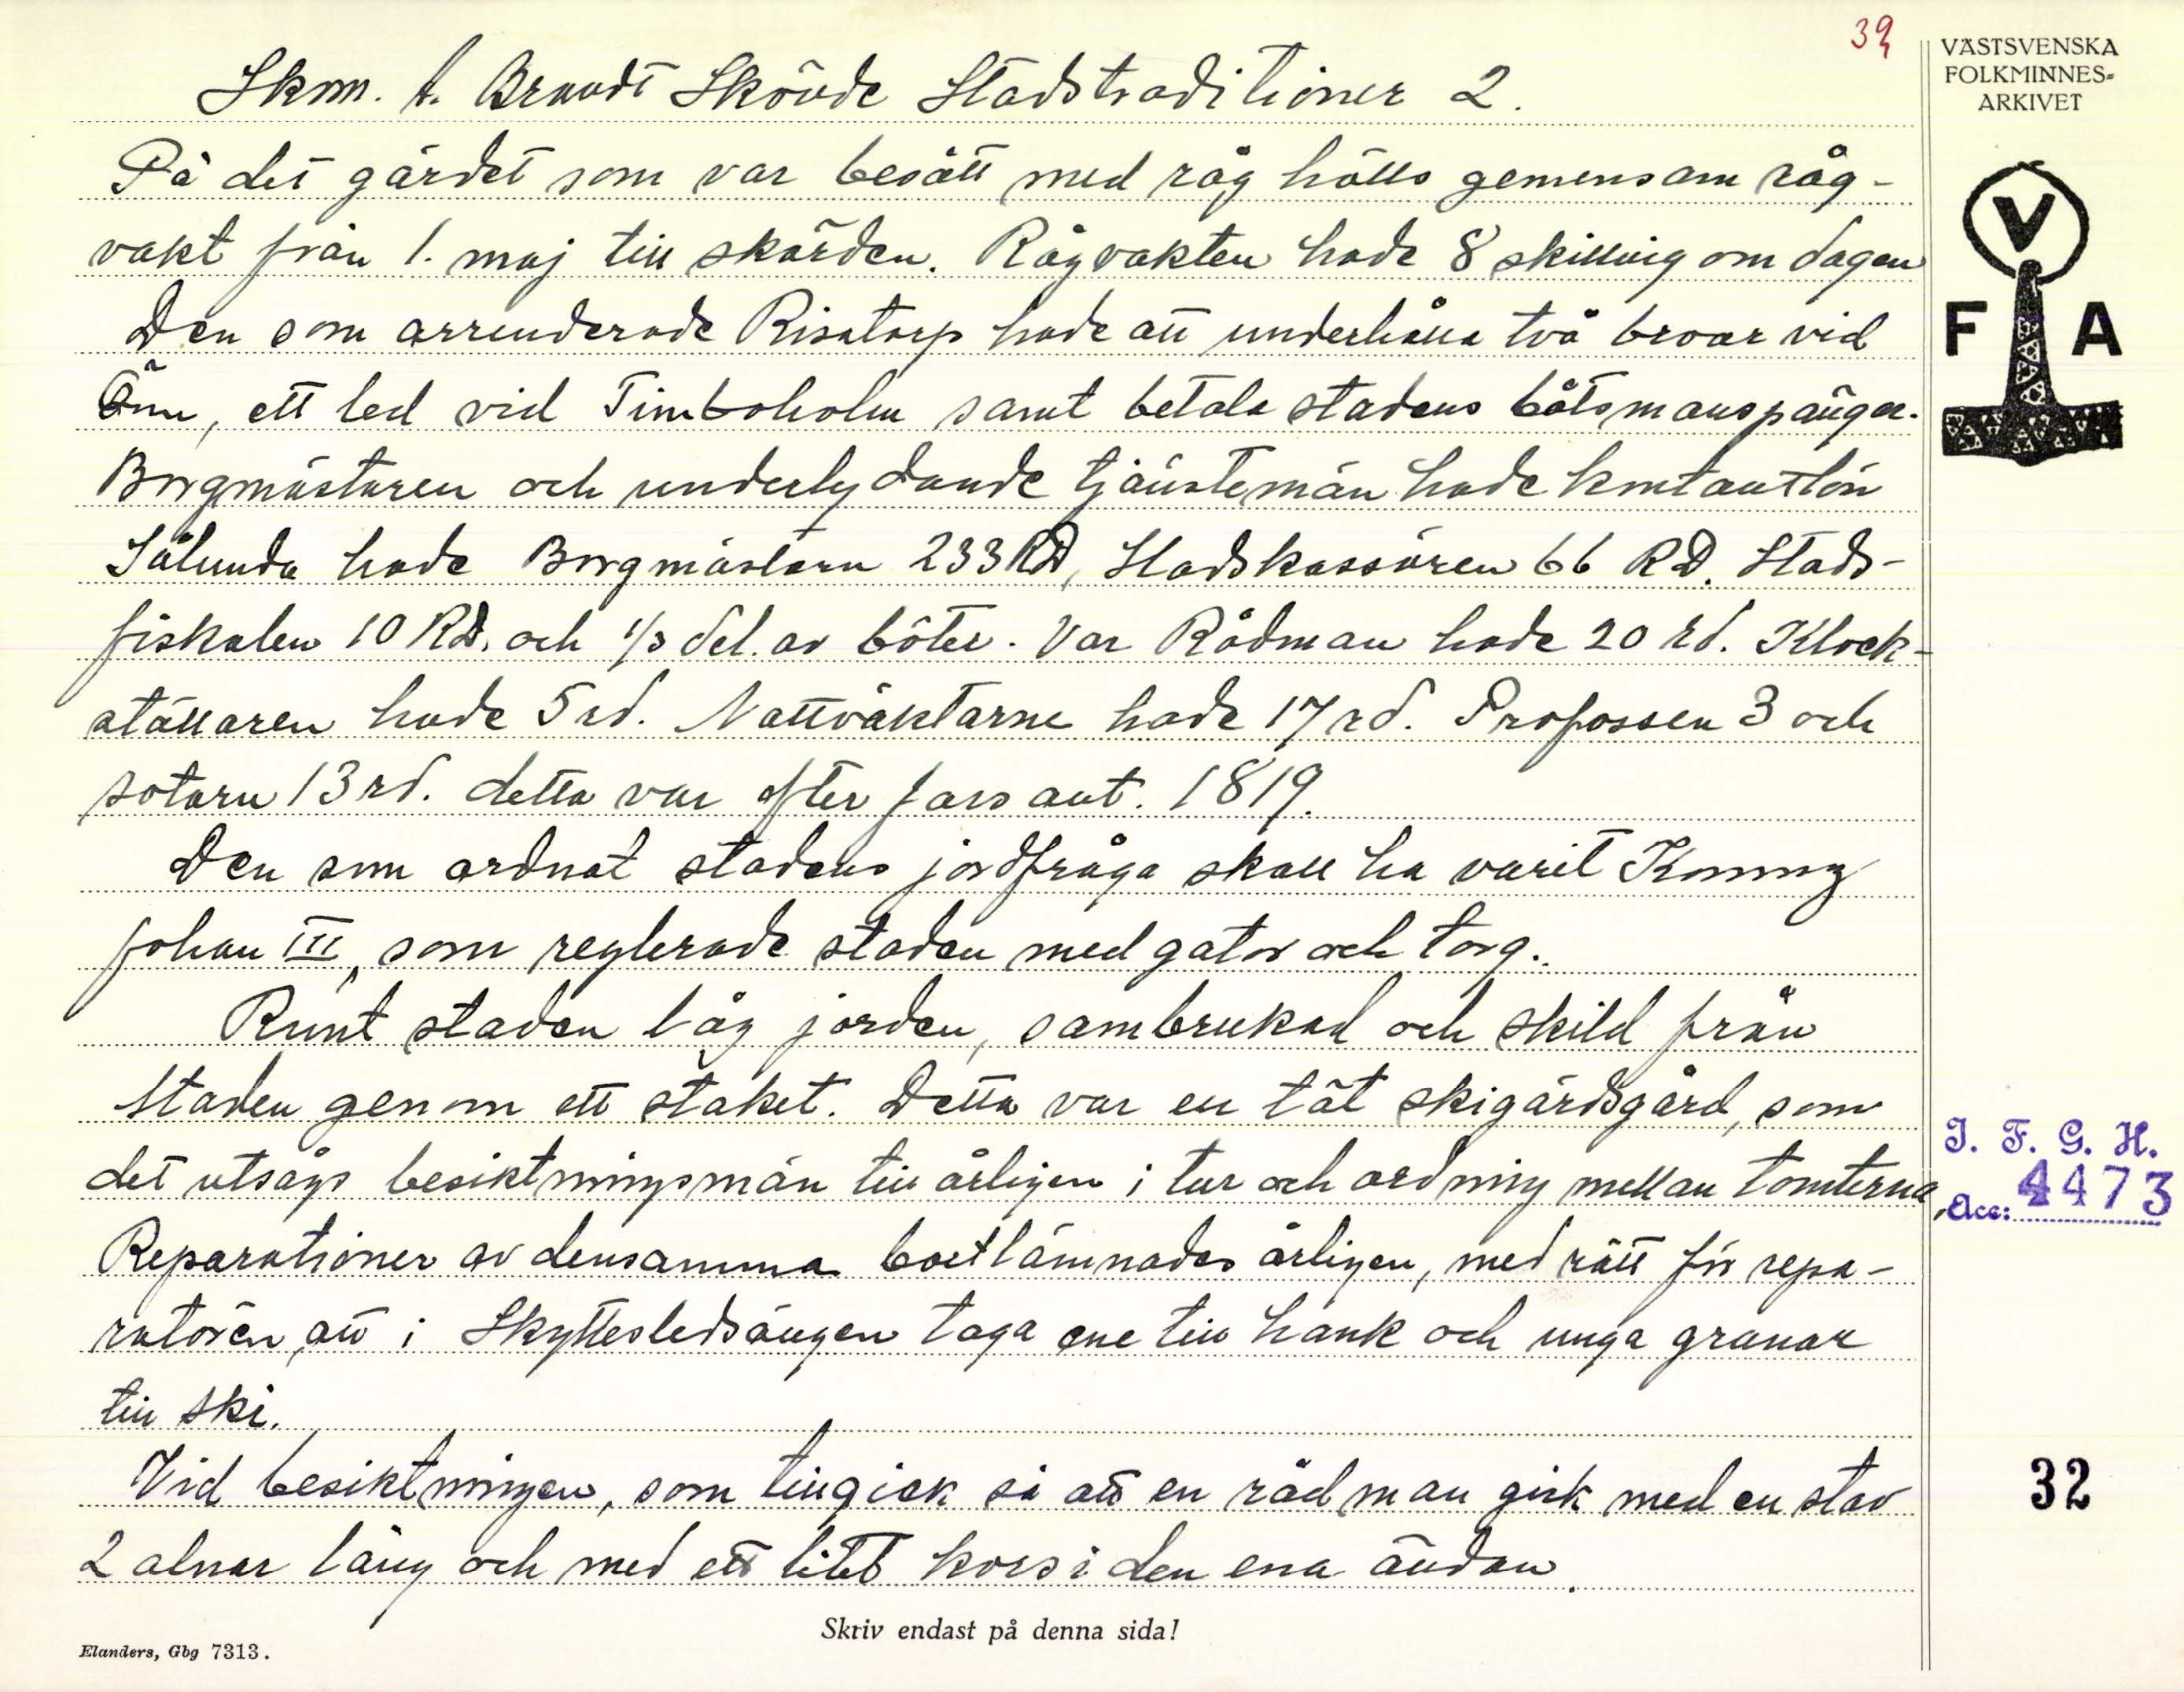 39
VÄSTSVENSKA
FOLKMINNES=
ARKIVET
Skm. A. Brandt Skövde Stadstraditioner 2.
På det gärdet som var besått med råg hölls gemensam råg-
vakt från 1. maj till skörden. Rågvakten hade 8 skilling om dagen
Den som arrenderade Risatorp hade att underhålla två broar vid
Önn, ett led vid Timboholm samt betala stadens båtsmanspängar.
Borgmästaren och underlydande tjänstemän hade kontantlön
Sålunda hade Borgmästarn 233 RD, Stadskassören 66 RD. Stads-
fiskalen 10 RD. och 1/3 del. av böter. Var Rådman hade 20 rd. Klock-
ställaren hade 5 rd. Nattväktarne hade 17 rd. Profossen 3 och
sotarn 13 rd. detta var efter fars ant. 1819.
Den som ordnat stadens jordfråga skall ha varit Konung
Johan III, som reglerade staden med gator och torg.
Runt staden låg jorden, sambrukad och skild från
staden genom ett staket. Detta var en tät skigärdsgård, som
det utsågs besiktningsmän till årligen i tur och ordning mellan tomterna
Reparationer av densamma bortlämnades årligen, med rätt för repa-
ratören, att i Skyttesledsängen taga ene till hank och unga granar
till ski.
Vid besiktningen, som tillgick så att en rådman gick med en stav
2 alnar lång och med ett litet kors i den ena ändan.
V
F A
I. F. G. H.
Acc: 4473
32
Skriv endast på denna sida!
Elanders, Gbg 7313.